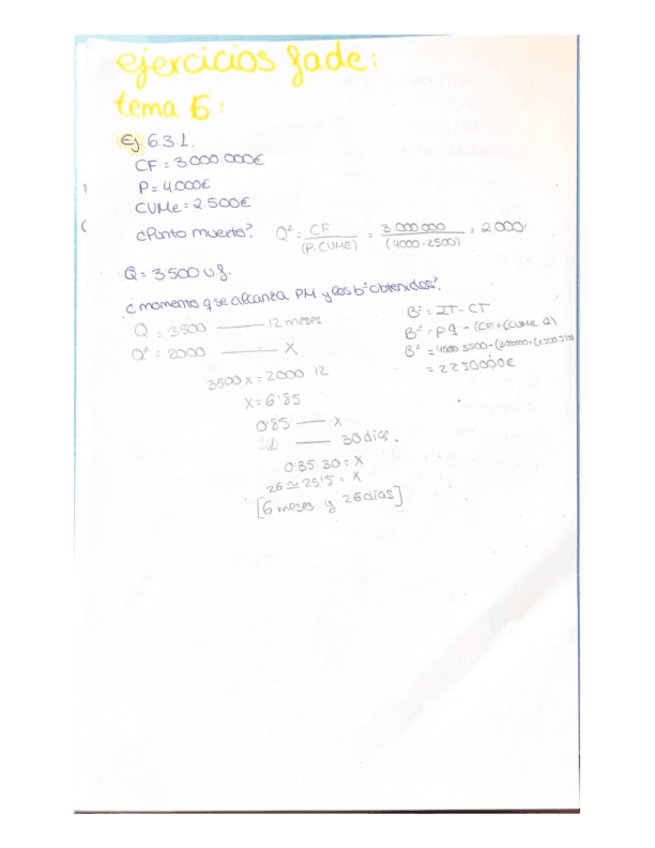 ejercicios fade:
tema 6:
Ej. 6.3.1.
CF = 3.000.000€
P = 4.000€
CVMe = 2.500€
¿Punto muerto? Q* = CF / (P-CVMe) = 3.000.000 / (4000-2500) = 2000
Q = 3500 u.f.
¿momento q se alcanza PM y los bº obtenidos?
Q = 3500 —— 12 meses
Q* = 2000 —— X
3500 x = 2000 · 12
X = 6'85
0'85 —— x
—— 30 días.
0'85 · 30 = X
26 ≃ 25'5 = X
[6 meses y 26 días]
Bº = IT - CT
Bº = P q - (CF + (CVMe Q)
Bº = 4000 · 3500 -
= 2250000€